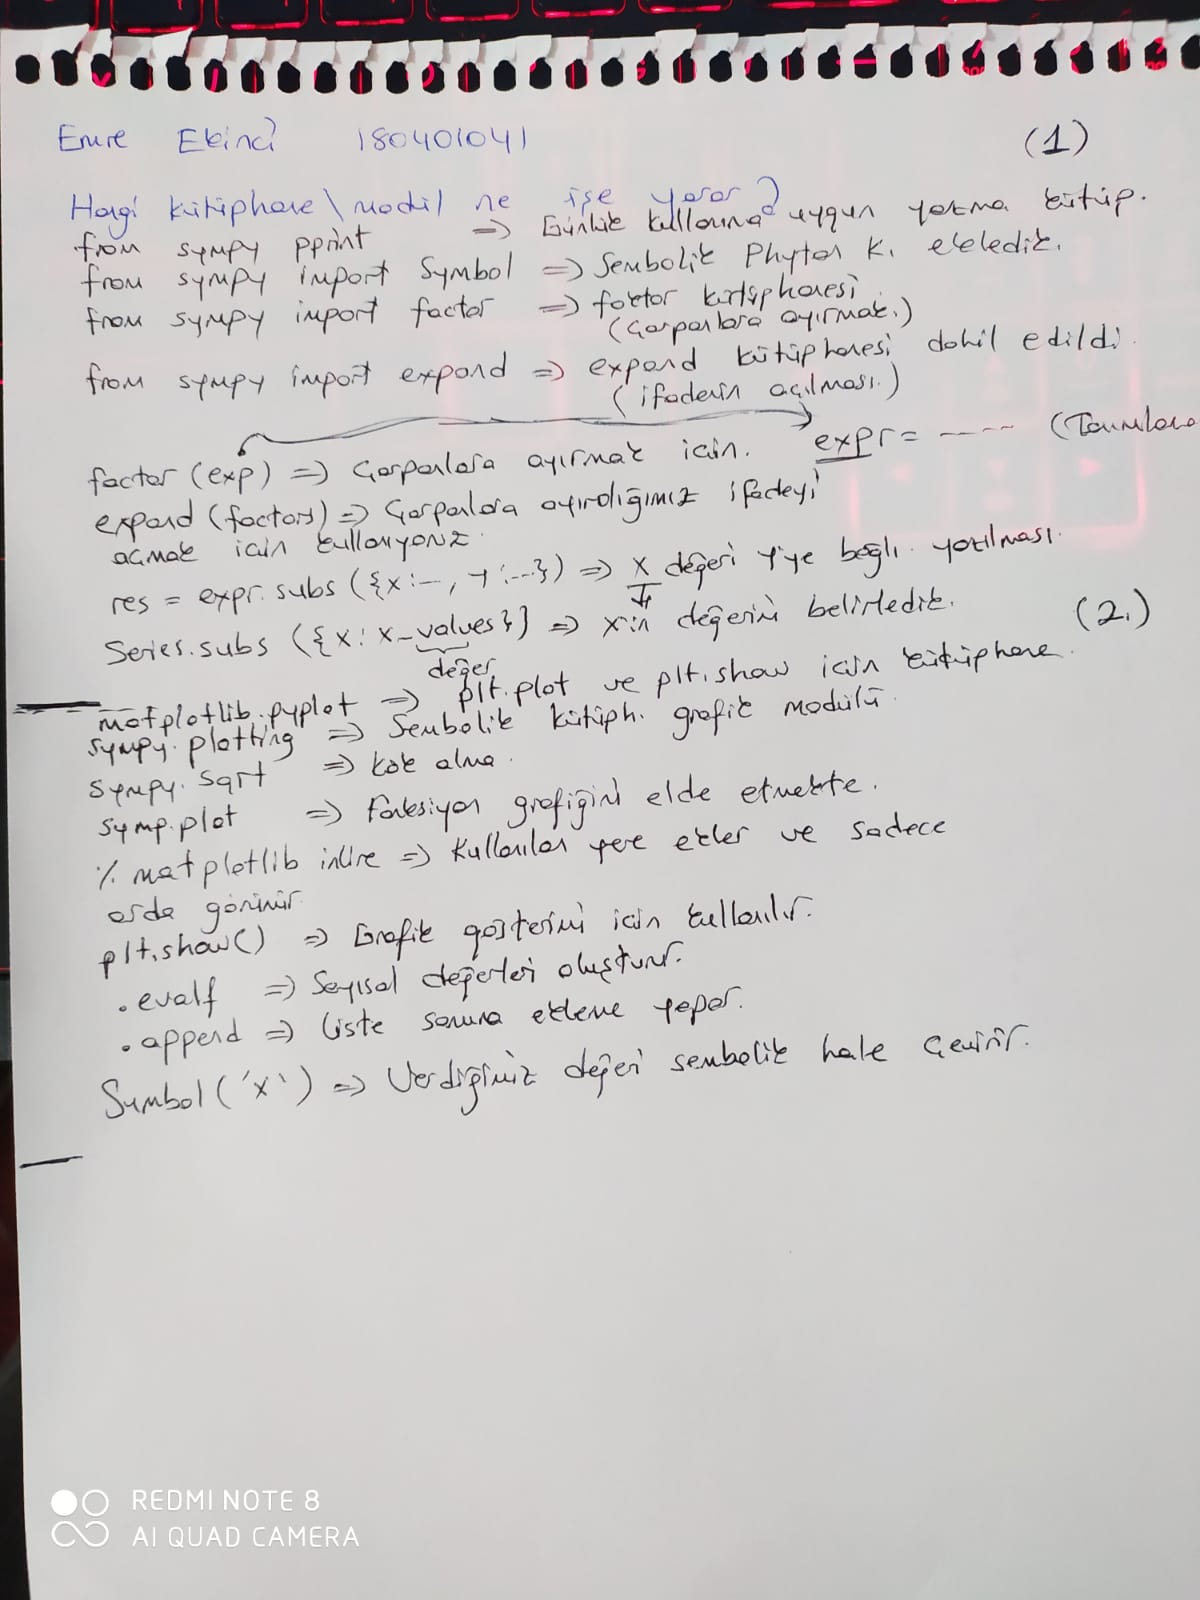 Emre Ekinci 180401041 (1)
Hangi kütüphane \ modül ne işe yarar?
from sympy pprint => Günlük kullanıma uygun yazma kütüp.
from sympy import Symbol => Sembolik Phyton K. ekledik.
from sympy import factor => faktör kütüphanesi
(Çarpanlara ayırmak.)
from sympy import expand => expand kütüphanesi dahil edildi.
(ifadenin açılması.)
factor (exp) => Çarpanlara ayırmak için. expr = ----
expand (factors) => Çarpanlara ayırdığımız ifadeyi
açmak için kullanıyoruz.
res = expr.subs ({x:--, y:--}) => x değeri y'ye bağlı yazılması.
Series.subs ({x: x_values}) => x'in değerini belirledik. (2.)
değer
matplotlib.pyplot => plt.plot ve plt.show için kütüphane.
sympy.plotting => Sembolik kütüph. grafik modülü.
sympy.sqrt => kök alma.
symp.plot => Fonksiyon grafiğini elde etmekte.
% matplotlib inline => Kullanılan yere ekler ve sadece
orda görünür.
plt.show() => Grafik gösterimi için kullanılır.
.evalf => Sayısal değerleri oluşturur.
.append => Liste sonuna ekleme yapar.
Symbol ('x') => Verdiğimiz değeri sembolik hale çevirir.
REDMI NOTE 8
AI QUAD CAMERA